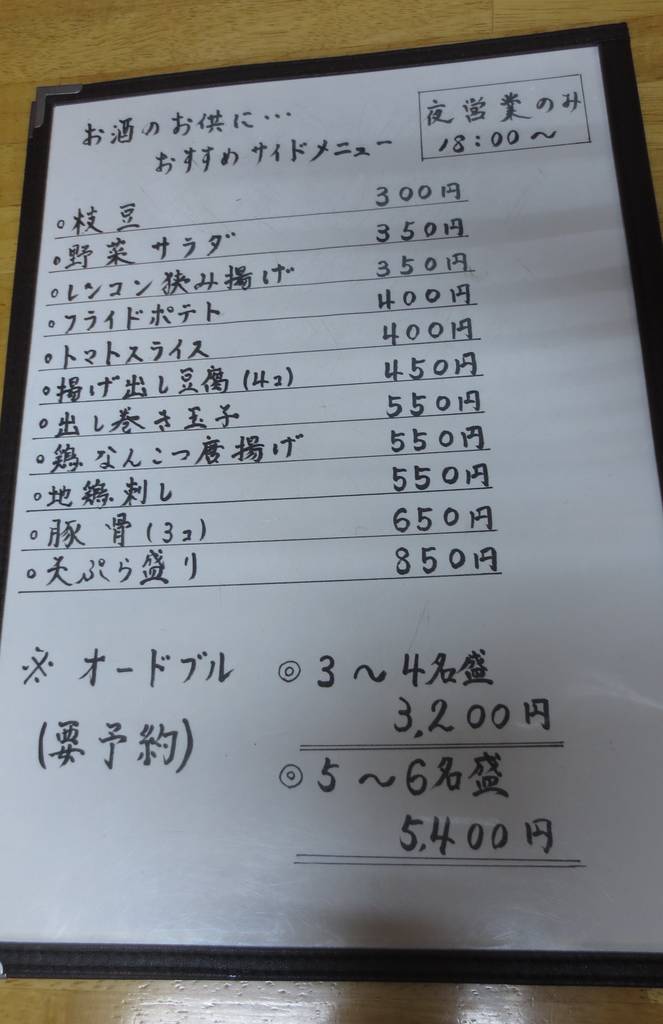 お酒のお供に…
おすすめサイドメニュー
夜営業のみ
18:00～
○枝豆 300円
○野菜サラダ 350円
○レンコン挟み揚げ 350円
○フライドポテト 400円
○トマトスライス 400円
○揚げ出し豆腐(4コ) 450円
○出し巻き玉子 550円
○鶏なんこつ唐揚げ 550円
○地鶏刺し 550円
○豚骨(3コ) 650円
○天ぷら盛り 850円
※オードブル ◎3～4名盛
(要予約) 3,200円
◎5～6名盛
5,400円